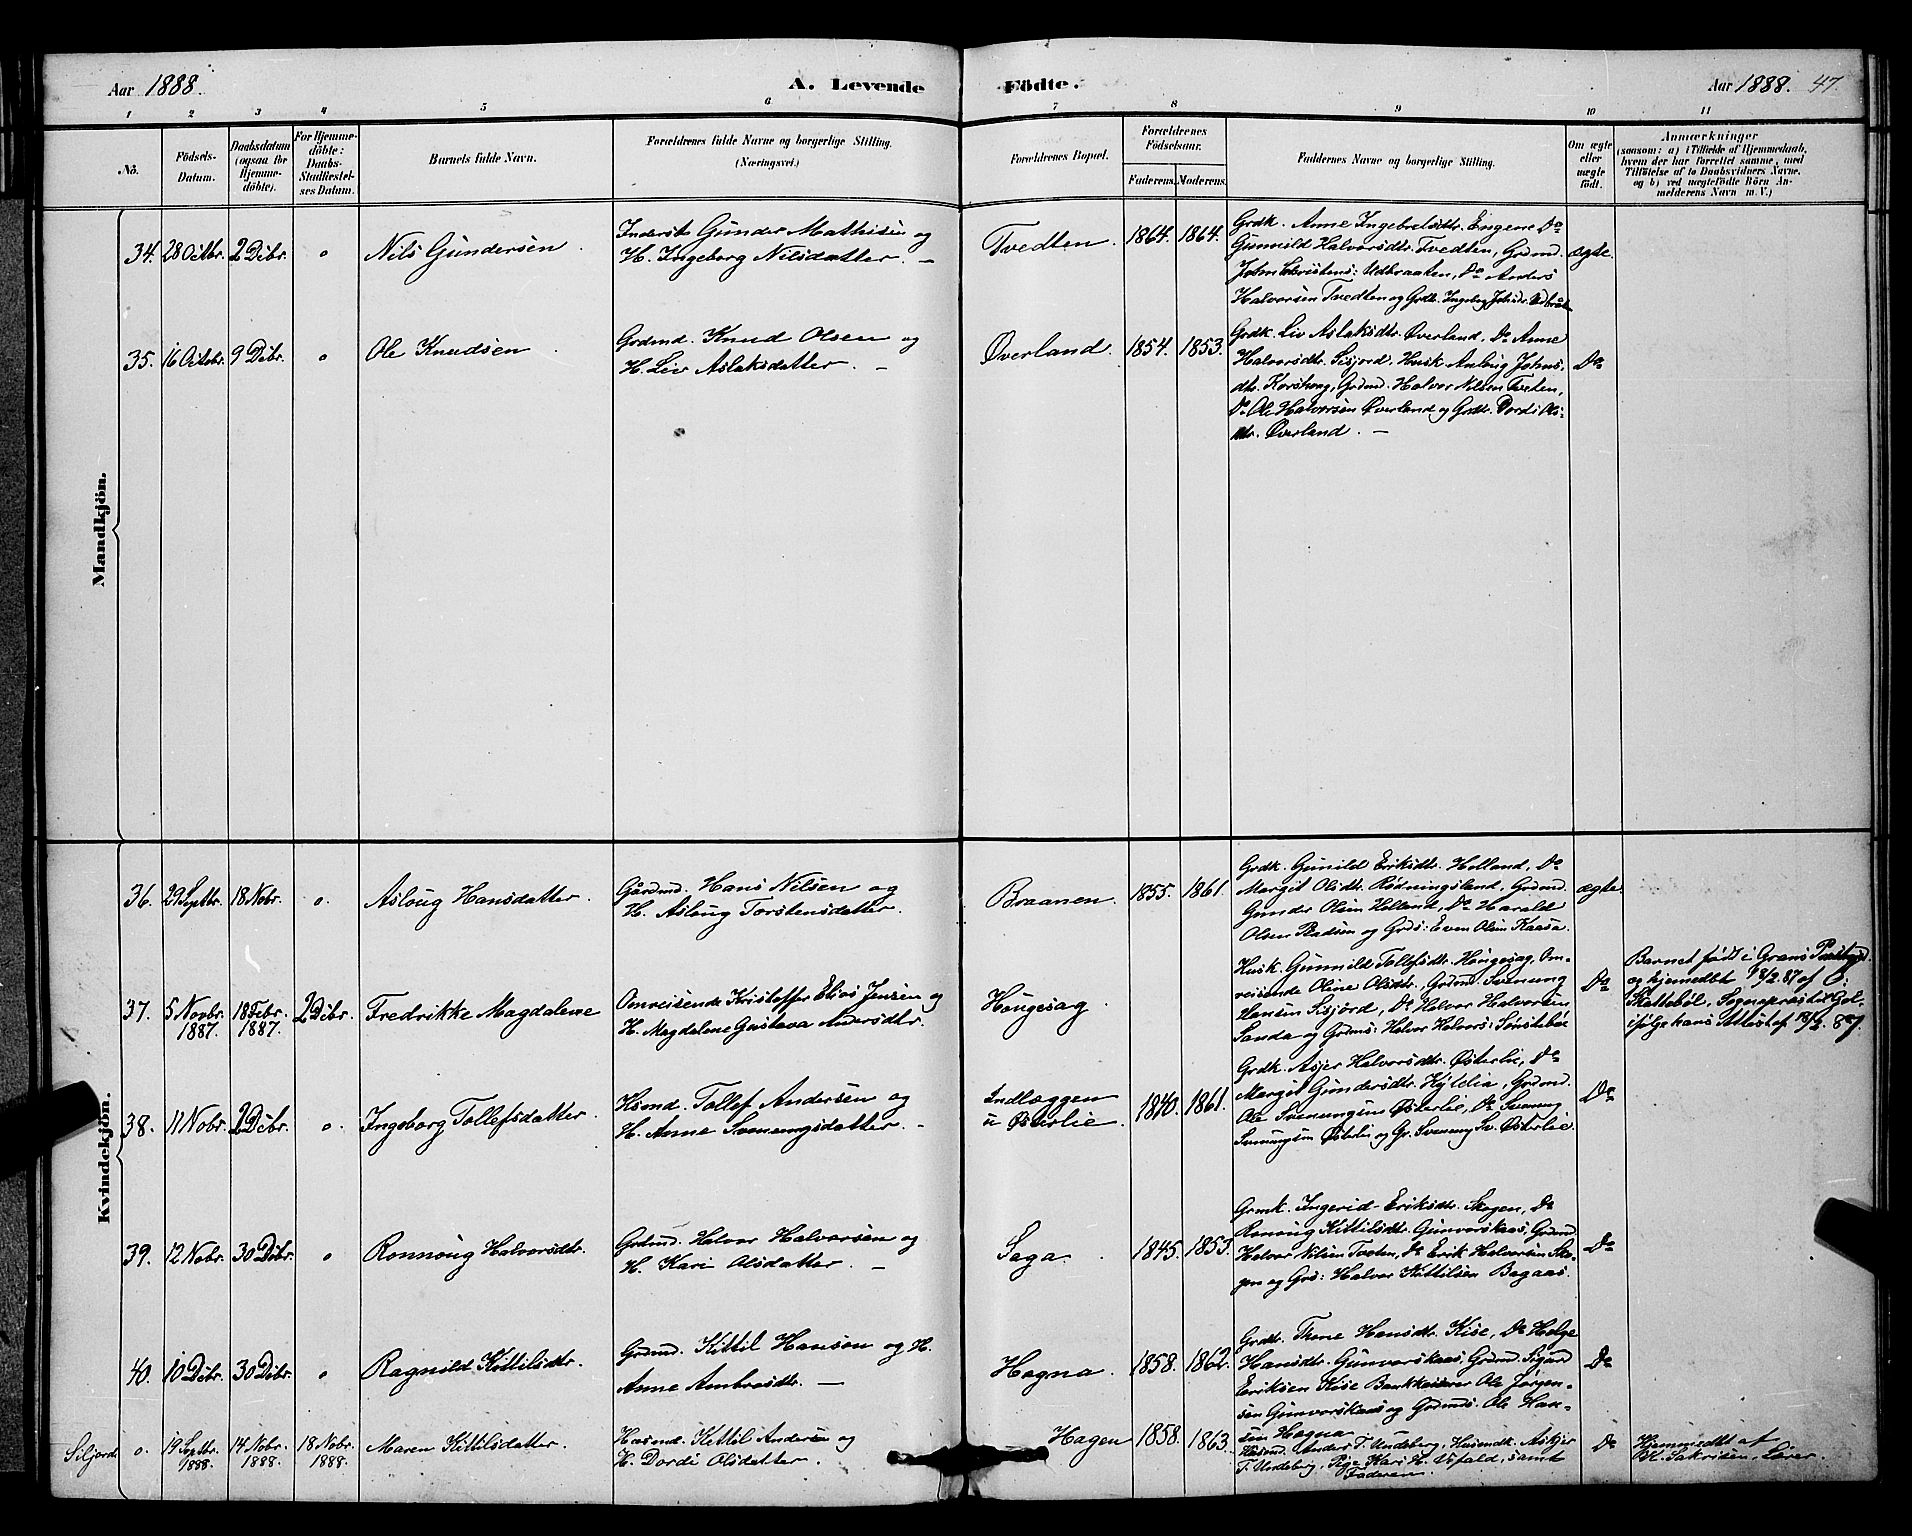 Aar 1888.
A. Levende Födte.
Aar 1888. 47.
1 2 3 4 5 6 7 8 9 10 11
No.
Födsels-Datum.
Daabsdatum (ogsaa for Hjemme-döbte).
For Hjemme-döbte: Daabs-Stadfæstel-ses Datum.
Barnets fulde Navn.
Forældrenes fulde Navne og borgerlige Stilling. (Næringsvei.)
Forældrenes Bopæl.
Forældrenes Födselsaar.
Faderens. Moderens.
Faddernes Navne og borgerlige Stilling.
Om ægte eller uægte födt.
Anmærkninger
(saasom: a) i Tilfælde af Hjemmedaab,
hvem der har forrettet samme, med
Tilföielse af to Daabsvidners Navne.
og b) ved uægtefödte Börn An-
melderens Navn m. V.)
Mandkjön.
34. 28 Octbr. 2 Dcbr. o Nils Gundersen.
Inderst Gunder Mathisen og
H. Ingeborg Nilsdatter. —
Tvedten. 1864. 1864.
Grdk. Anne Ingebretsdtr. Engene Do
Gunnild Halvorsdtr. Tvedten, Grdmd.
John Christens: Udbraaten, Do Anders
Halvorsen Tvedten og Grdtr. Ingeborg Johsdr. Udbraaten
ægte.
35. 16 Octobr. 9 Dcbr. o Ole Knudsen.
Grdmd. Knud Olsen og
H. Liv Aslaksdatter. —
Øverland. 1854. 1853.
Grdk. Liv Aslaksdtr. Øverland, Do Anne
Halvorsdtr. Sisjord, Husk. Anlaug Johns-
dtr. Korshaug, Grdmd. Halvor Nilsen Tveten,
Do Ole Halvorsen Øverland og Grdtr. Dordi Ols-
dtr. Øverland. —
Do
Kvindekjön.
36. 29 Septbr. 18 Nobr. o. Asloug Hansdatter.
Gårdmd. Hans Nilsen og
H. Aslaug Torstensdatter.
Braanen. 1855. 1861.
Grdk. Gunild Eriksdtr. Holland, Do
Margit Olsdtr. Rödningsland, Grdmd.
Gunder Olsen Holland, Do Harald
Olsen Badsen og Grds: Even Olsen Kaasa.
ægte.
37. 5 Novbr. 1887. 18 Febr. 1887. 2 Dcbr. Fredrikke Magdalene
Omreisende Kristoffer Elias Jensen og
H. Magdalene Gustava Andersdtr.
Haugesag
Husk. Gunnild Tollefsdtr. Haugesag, Om-
reisende Oline Olsdtr., Grdmd. Svenung
Hansen Sisjord, Do Halvor Halvorsen
Sanda og Grdmd: Halvor Halvors: Sönstebøe
Do
Barnet født i Grans Præstegd.
og hjemmedöbt 18/2 87 af O:
Skattebøl, Sognepræst i Gol
ifølge hans Attest af 18/2 87.
38. 11 Nobr. 2 Dcbr. o. Ingeborg Tollefsdatter.
Husmd. Tollef Andersen og
H. Anne Svenungsdatter. —
Indlæggen
u Østerlie. 1840. 1861.
Grdk. Asjer Halvorsdtr. Østerlie, Do
Margit Gundersdtr. Hytelia, Grdmd.
Ole Svenungsen Østerlie, Do Svenung
Svenungsen Østerlie og Gr. Svenung Sv. Østerlie.
Do
39. 12 Nobr. 30 Dcbr. o Ronnoug Halvorsdtr.
Grdmd. Halvor Halvorsen og
H. Kari Olsdatter. —
Saga. 1845. 1853.
Grmk. Ingerid Eriksdtr. Skogen, Do
Ronoug Kittilsdtr. Gunvorskaas, Grdmd.
Halvor Nilsen Tveten, Do Erik Halvorsen Sko-
gen og Grs: Halvor Kittilsen Bagaas.
Do
40. 10 Dcbr. 30 Dcbr. o Ragnild Kittilsdtr.
Grdmd. Kittil Hansen og H.
Anne Ambrosdtr. —
Hagna. 1858. 1862.
Grdtr. Thone Hansdtr. Kise, Do Helge
Hansdtr. Gunvorskaas, Grdmd. Sigurd
Eriksen Kise Bankkasserer Ole Jørgen-
sen Gunvorskaas og Grdmds. Ole Han-
sen Hagna
Do
Siljord. o. 19 Septbr. 1888. 14 Nobr. 1888. 18 Nobr. 1888. Maren Kittilsdatter.
Husmd. Kittil Andersen og
H. Dordi Olsdatter.
Hagen 1858. 1863.
Husmd. Anders T. Undeberg, Husmdk. Askjer
T. Undeberg, Pige Kari H. Vefald, samt
Faderen.
Do
Hjemmedöbt af
Bk. Sakrisen, Lærer.